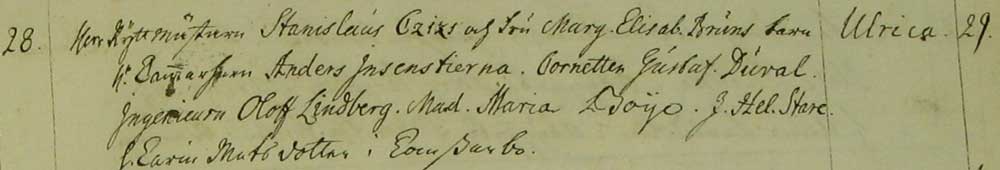 28. Herr Ryttmästarn Stanislaus Czizs och fru Marg. Elisab. Brúns barn Ulrica. 29.
hr Cammarherrn Anders Insenstierna. Cornetten Gústaf Dúval.
Ingenieurn Oloff Lindberg. Mad. Maria Boije. J. Hel. Stare.
h. Carin Mats dotter.